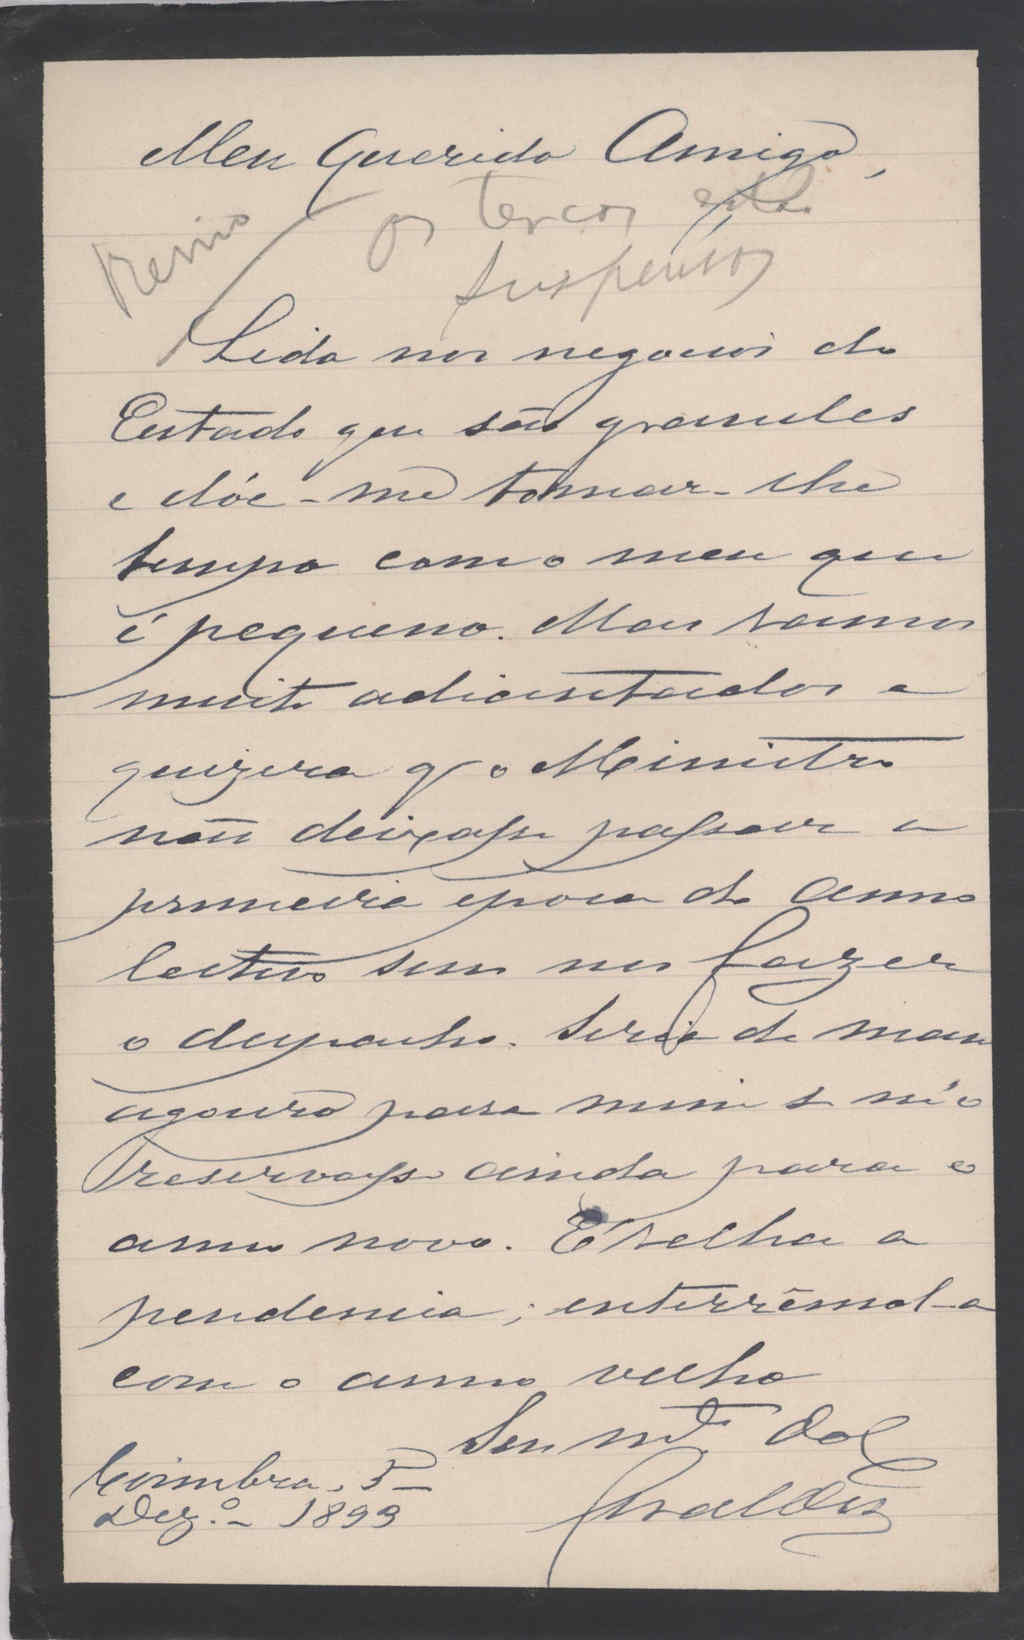 Meu Querido Amigo,
Reino os terços estão
suspensos
Lida nos negocios do
Estado que são grandes
e dóe-me tomar-lhe
tempo com o meu que
é pequeno. Mas vamos
muito adiantados e
quizera q o Ministro
não deixasse passar a
primeira epoca do anno
lectivo sem nos fazer
o despacho. Seria de mau
agouro para mim se m'o
reservasse ainda para o
anno novo. É velha a
pendencia; enterrêmol-a
com o anno velho
Seu mt.º
Coimbra. 5-
Dez.º- 1899